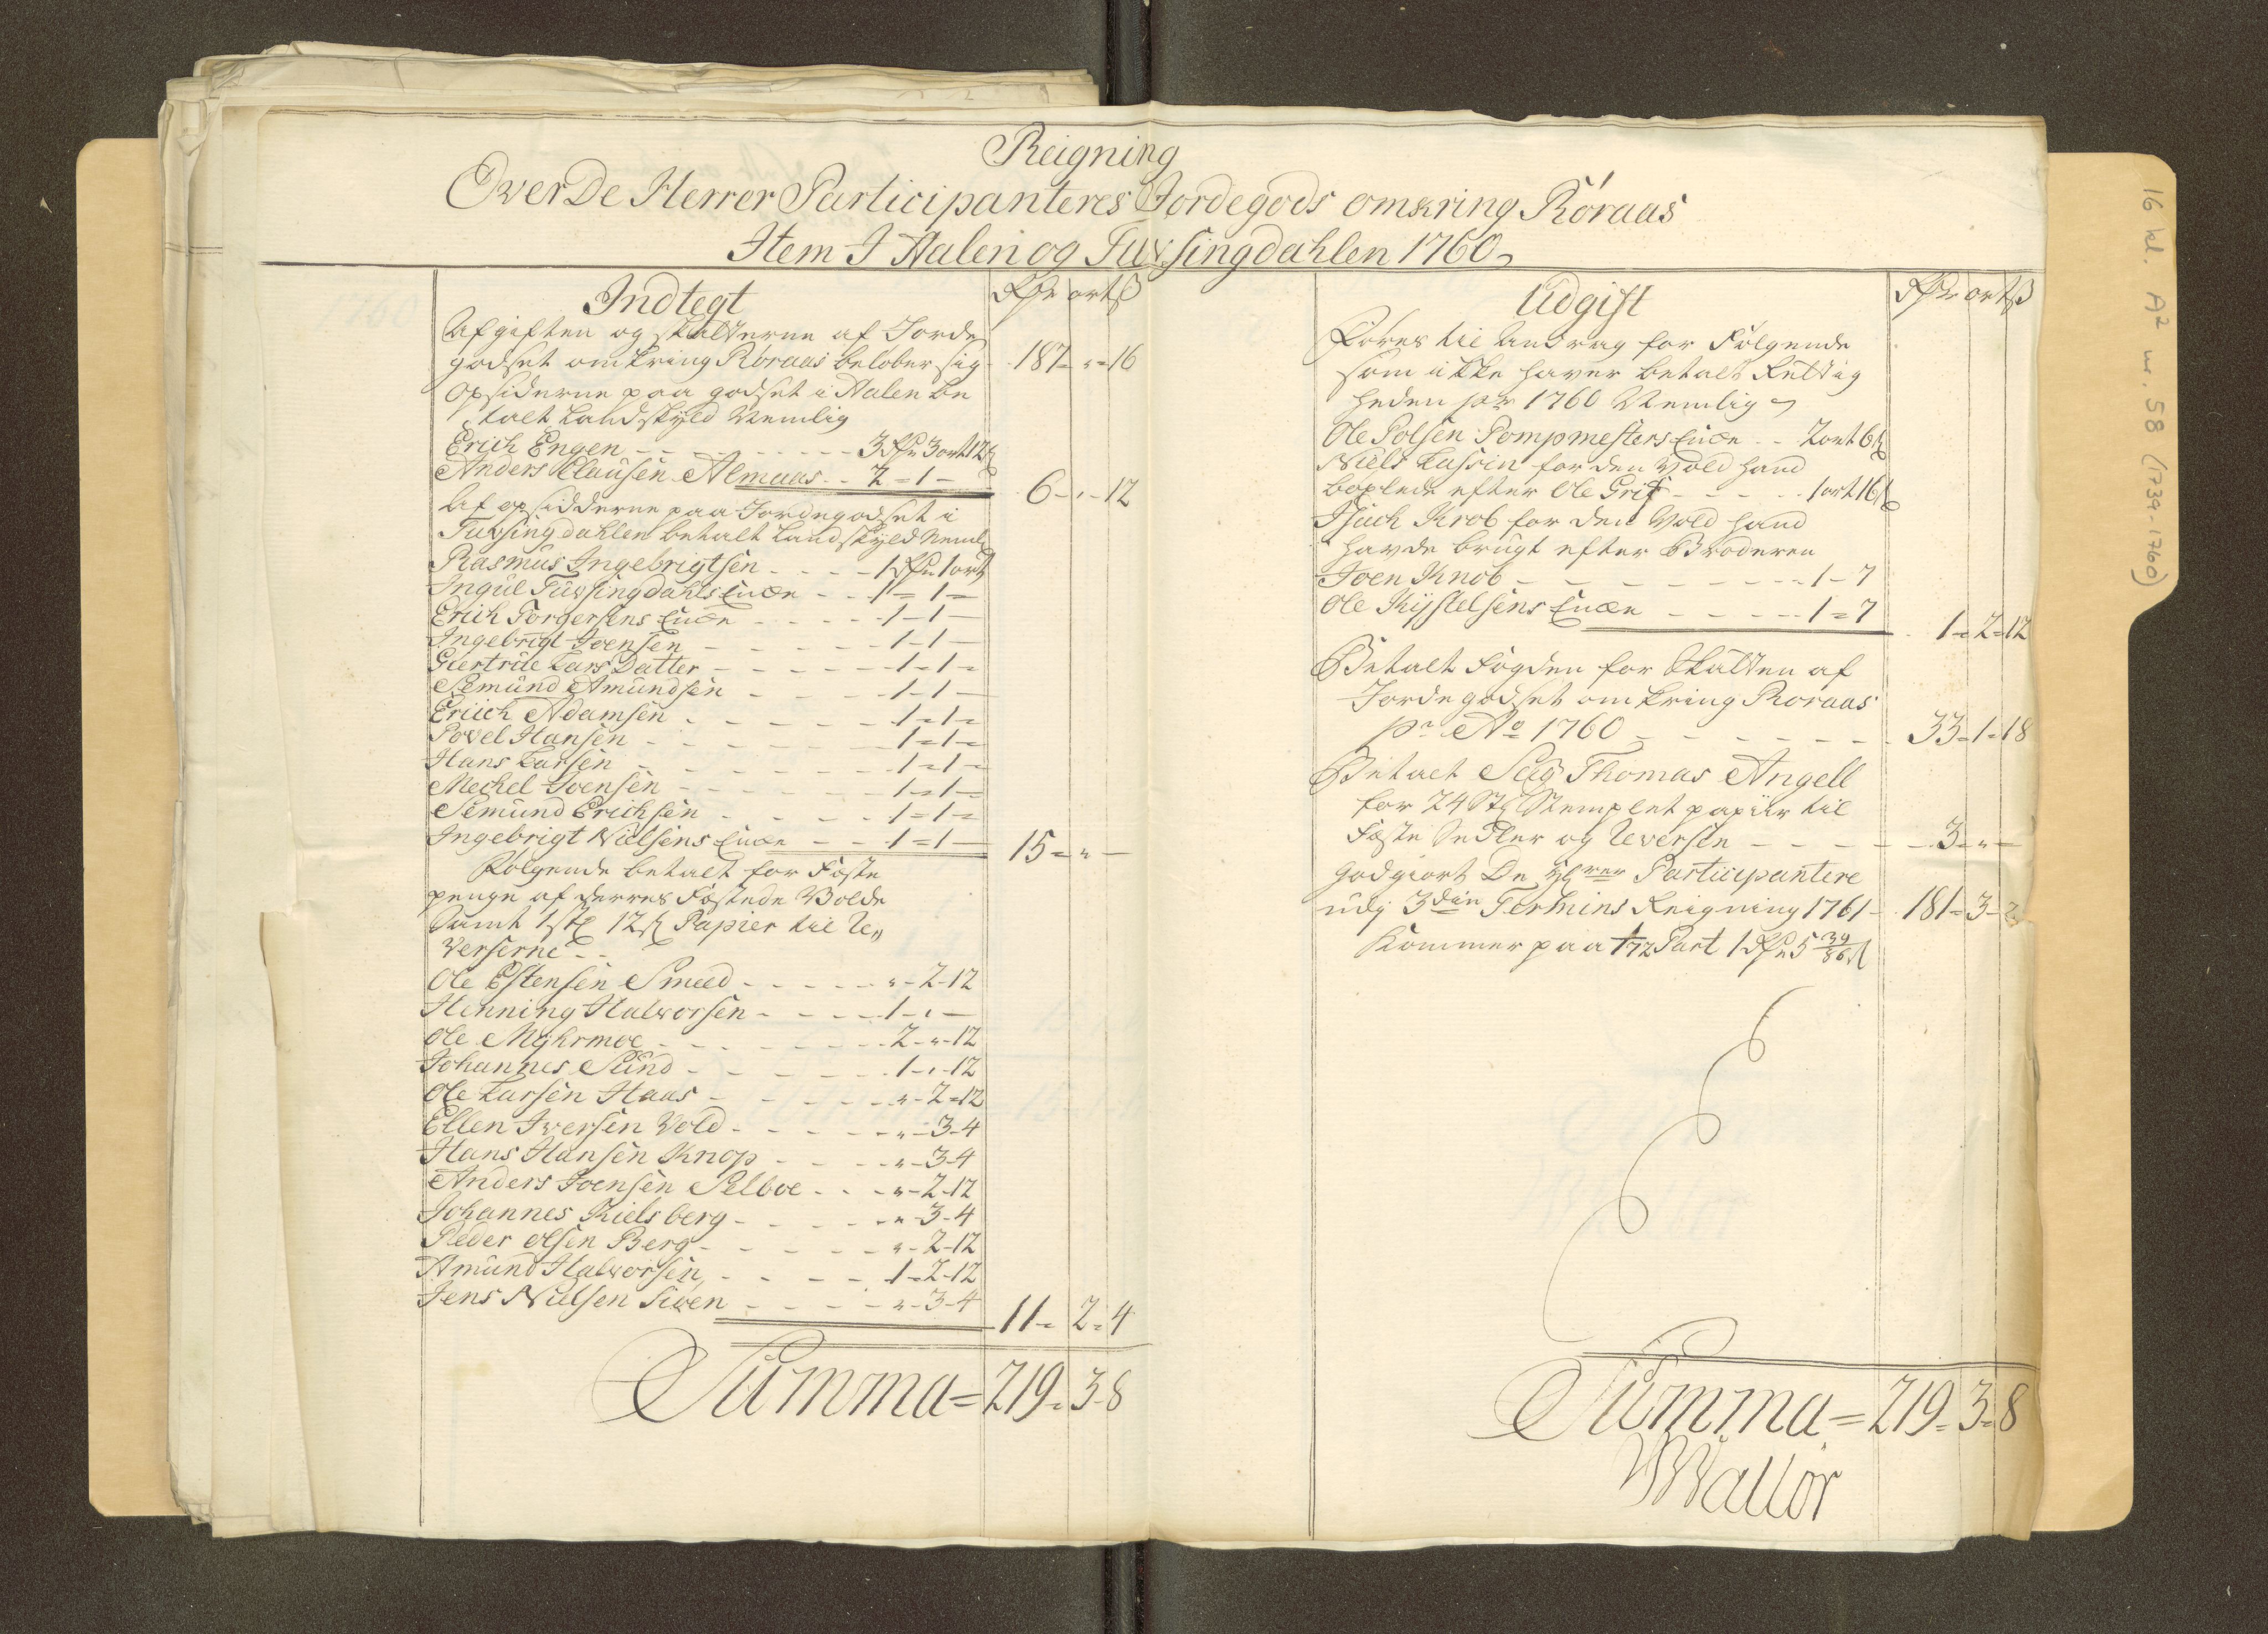 Reigning
Over De Herrer Participanteres Jordegods omkring Röraas
Item I Aalen og Tufsingdahlen 1760
Indtegt
Rdr ort ß
Afgiften og skatterne af Jorde
godset omkring Röraas belöber sig 187 = " = 16
Opsiderne paa godset i Aalen be
talt Landskyld Nemlig
Erich Engen - - - 3 Rdr 3 ort 12 ß
Anders Clausen Almaas - - 2 = 1 -
6 - " - 12
Af opsidderne paa Jordegodset i
Tufsingdahlen betalt Landskyld Neml
Rasmus Ingebrigtsen - - - - 1 Rdr 1 ort
Ingul Tufsingdahls Encke - - 1 = 1 =
Erich Torgersens Encke - - - - 1 - 1 -
Ingebrigt Joensen - - - - 1 - 1 -
Giertrue Lars Datter - - - - 1 = 1 =
Semund Amundsen - - - - 1 - 1 -
Eriich Adamsen - - - - 1 = 1 =
Povel Hansen - - - - 1 = 1 =
Hans Larsen - - - - 1 = 1 =
Mechel Joensen - - - - 1 = 1 =
Semund Erichsen - - - - 1 = 1 =
Ingebrigt Nielsens Encke - - 1 = 1 -
15 = " -
Fölgende betalt for Föste
penge af derres Föstede Volde
Samt 1 stk 12 ß Papier til Re„
verserne - -
Ole Estensen Smed - - - - " - 2 - 12
Henning Halvorsen - - - - 1 - " -
Ole Myhrmoe - - - - 2 - " - 12
Johannes Sund - - - - 1 - " - 12
Ole Larsen Haas - - - - " - 2 = 12
Ellen Iversen Vold - - - - " - 3 - 4
Hans Hansen Knop - - - - " - 3 - 4
Anders Joensen Selboe - - - " - 2 - 12
Johannes Kielsberg - - - - " - 3 - 4
Peder Olsen Berg - - - - " - 2 - 12
Amund Halvorsen - - - - 1 = 2 - 12
Jens Nielsen Siöen - - - - " - 3 - 4
11 = 2 = 4
Summa = 219 = 3 - 8
Udgift
Rdr ort ß
Föres til Andrag for Fölgende
som ikke haver betalt Rettig
heden pr 1760 Nemlig
Ole Polsen Pompmesters Encke - - 2 ort 6 ß
Niels Lassin for den Vold hand
boxlede efter Ole Grif - - - - 1 ort 16 ß
Isach Krob for den Vold hand
havde brugt efter Broderen
Joen Knob - - - - 1 - 7
Ole Kystelsens Encke - - - - 1 = 7
1 = 2 = 12
Betalt Fogden for Skatten af
Jordegodset omkring Roraas
pr Ao 1760 - - - - 33 = 1 = 18
Betalt Sr Thomas Angell
for 24 Stk Stemplet papiir til
Föste Sedler og Reversen - - - - 3 - " -
Godgiort De Hrrer Participantere
udj 3die Termins Reigning 1761 - 181 = 3 - 2
Kommer paa 1/72 Part 1 Rdr 5 39/86 ß
Summa = 219 = 3 = 8
Wallör
16 kl. A2 nr. 58 (1739-1760)